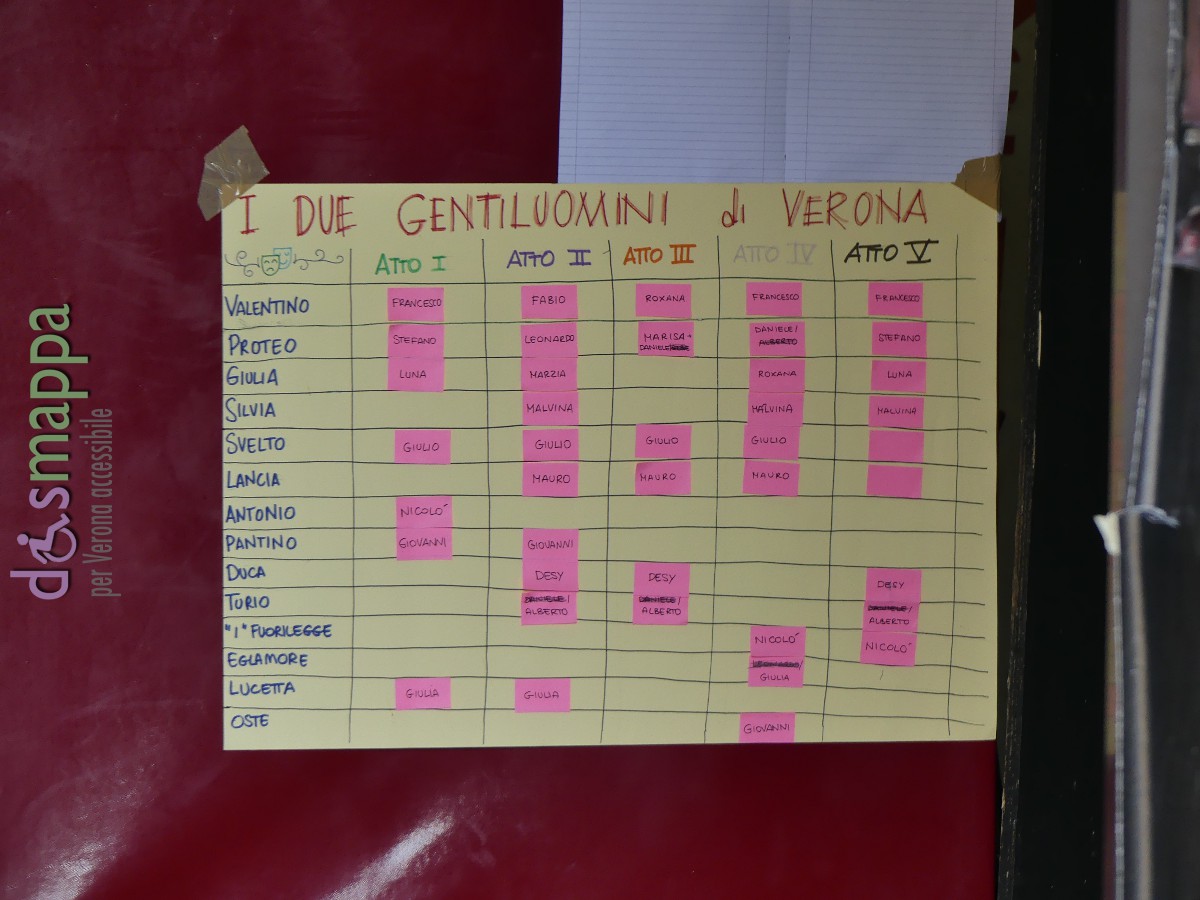 I DUE GENTILUOMINI di VERONA
ATTO I ATTO II ATTO III ATTO IV ATTO V
VALENTINO FRANCESCO FABIO ROXANA FRANCESCO FRANCESCO
PROTEO STEFANO LEONARDO MARISA + DANIELE DANIELE/ ALBERTO STEFANO
GIULIA LUNA MARZIA ROXANA LUNA
SILVIA MALVINA MALVINA MALVINA
SVELTO GIULIO GIULIO GIULIO GIULIO
LANCIA MAURO MAURO MAURO
ANTONIO NICOLO'
PANTINO GIOVANNI GIOVANNI
DUCA DESY DESY DESY
TURIO DANIELE/ ALBERTO DANIELE/ ALBERTO DANIELE/ ALBERTO
"I" FUORILEGGE NICOLO' NICOLO'
EGLAMORE GIULIA
LUCETTA GIULIA GIULIA
OSTE GIOVANNI
dismappa
per Verona accessibile